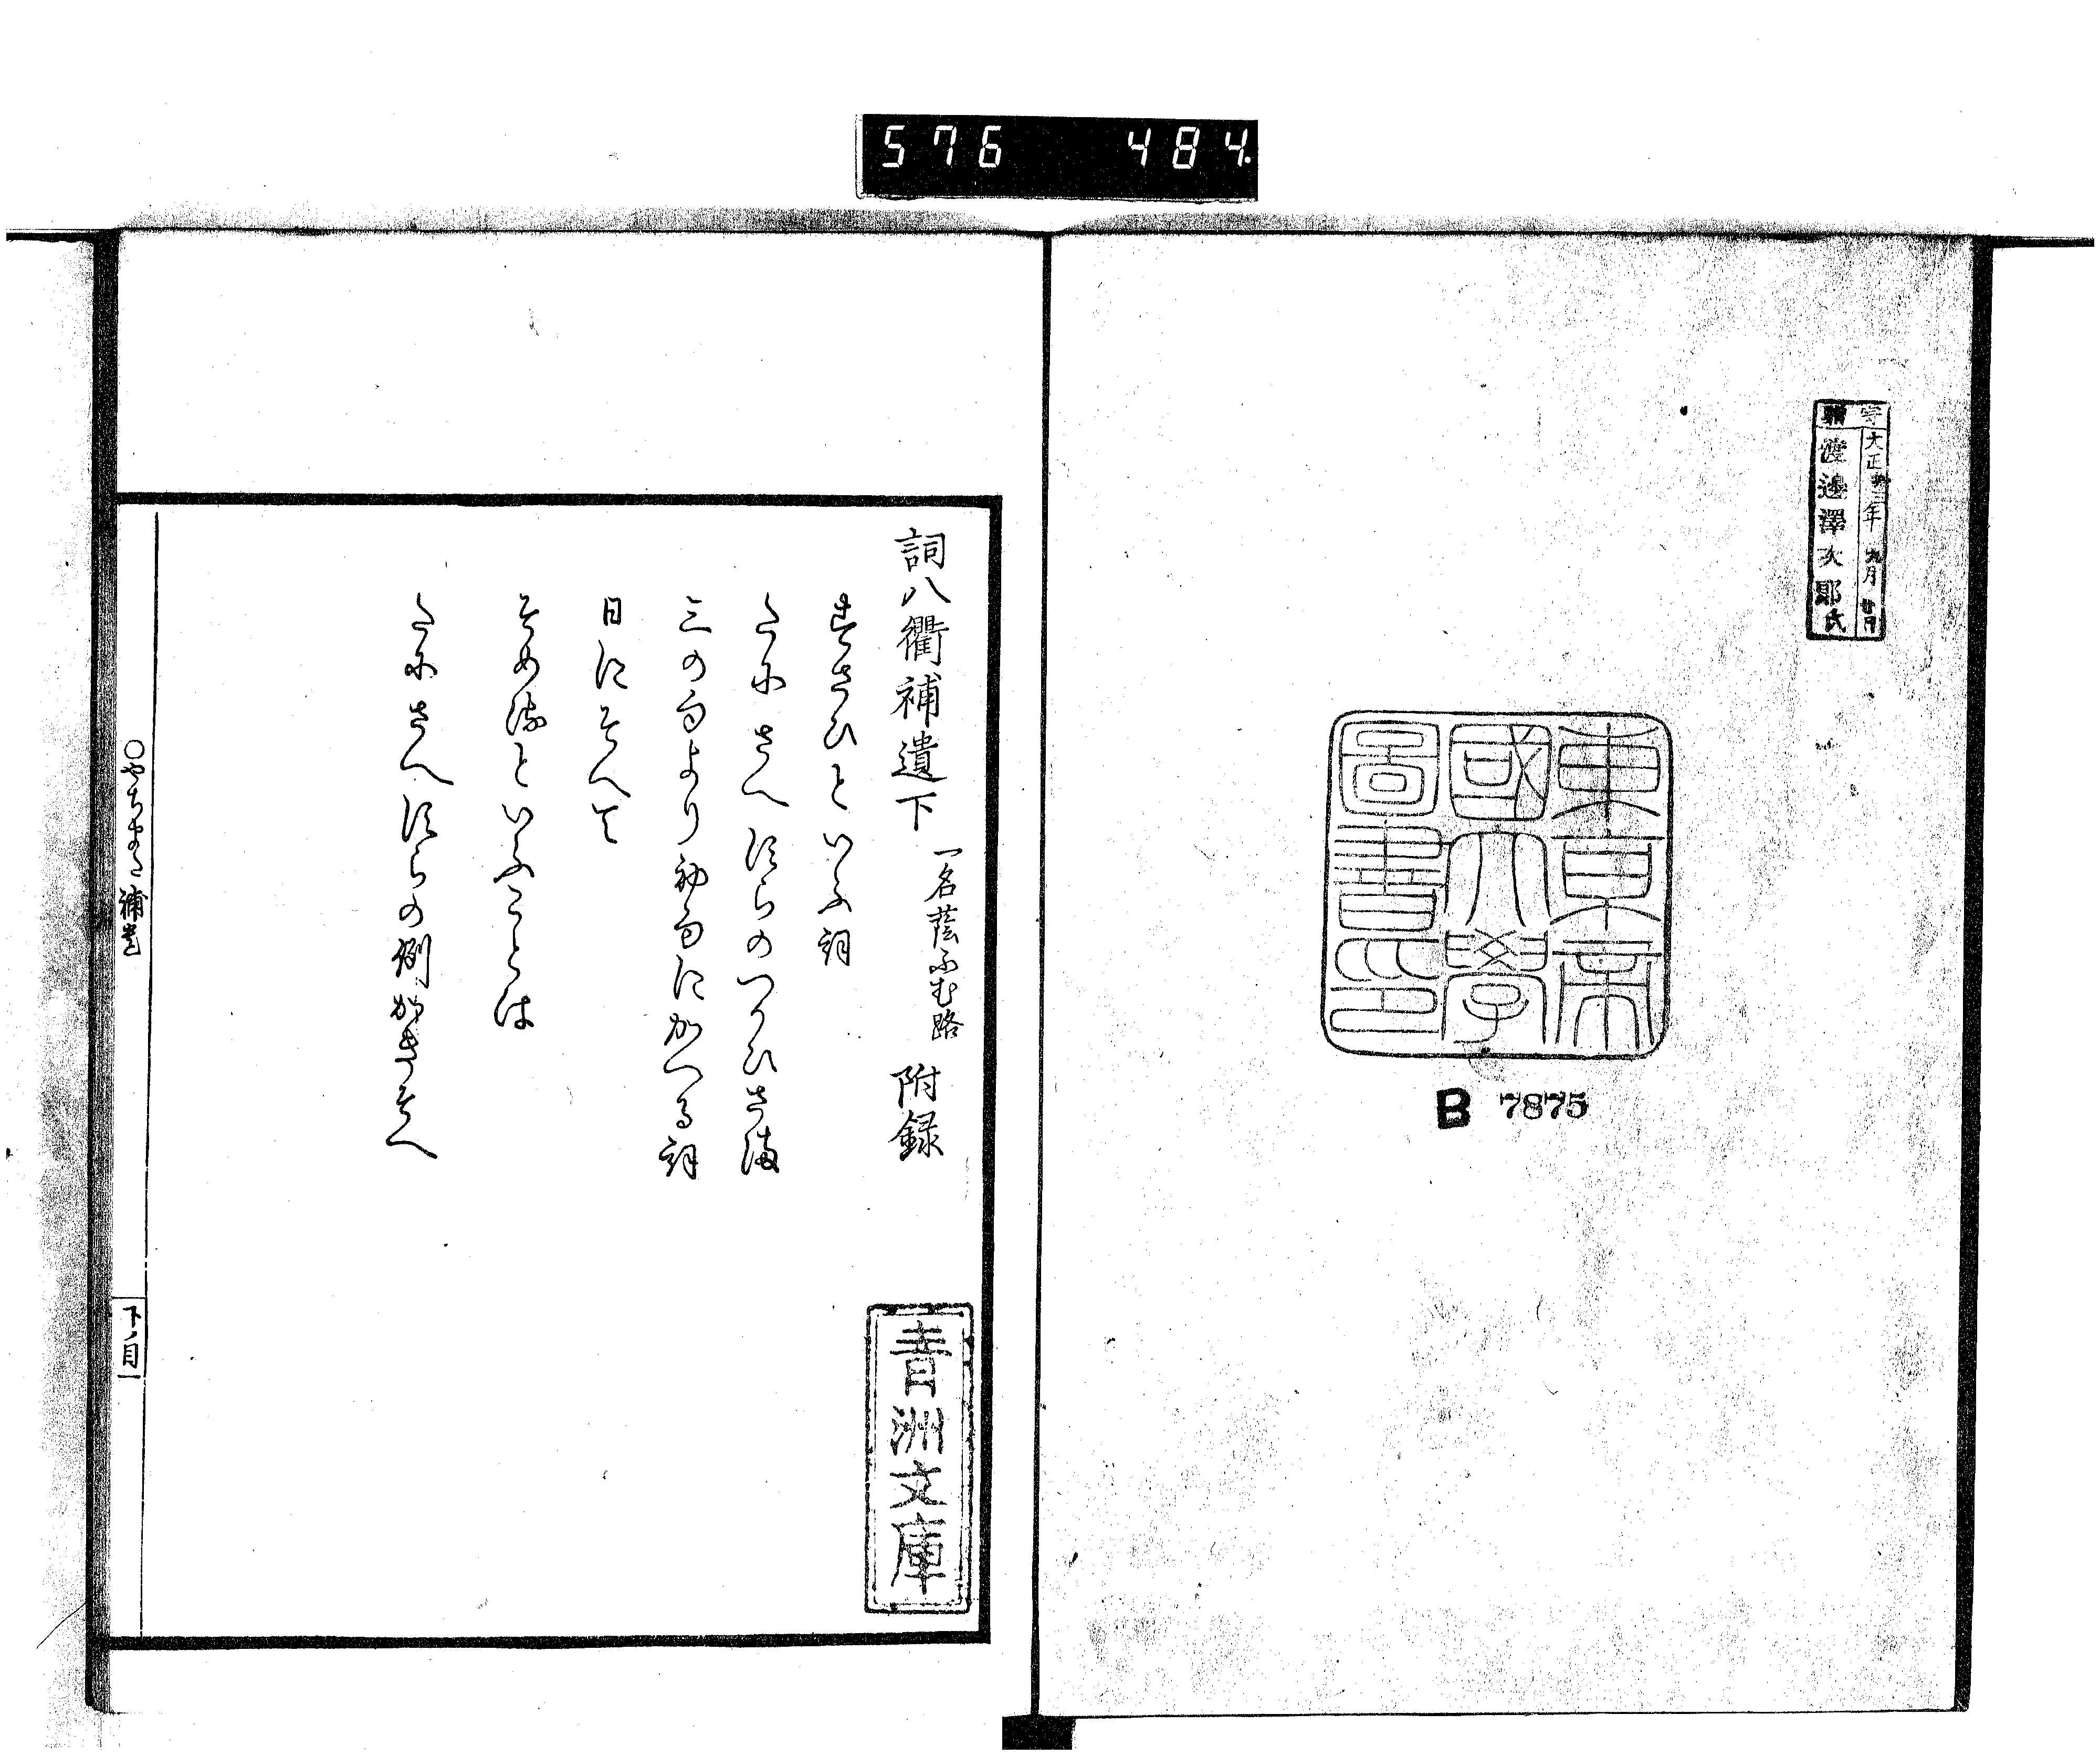 576 484
寄贈
大正十三年 九月 廿日
渡邊澤次郎氏
東京帝
國大學
圖書印
B 7875
詞八衢補遺下 一名蔭ふむ路 附録
青洲文庫
すさひといふ詞
たにさへすらのつかひさま
三の句より初句にかへる詞
日にそへて
そめ流といふことは
たにさへすらの例かきそへ
○やちまた補遺
下ノ目一